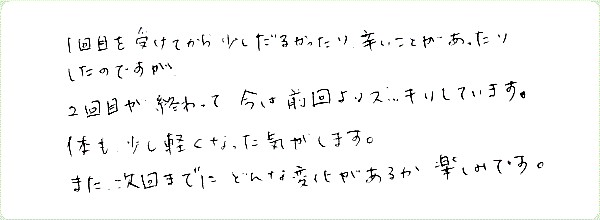 1回目を受けてから少しだるかったり、辛いことがあったり
したのですが
2回目が終わって今は前回よりスッキリしています。
体も少し軽くなった気がします。
また、次回までにどんな変化があるか楽しみです。